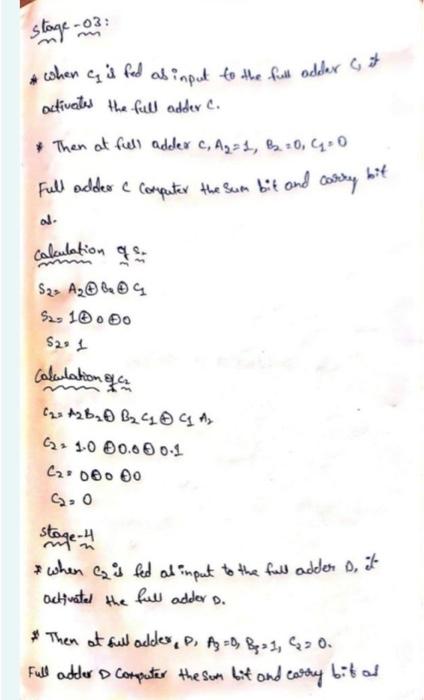 Stage-03:
* when C1 is fed as input to the full adder C, it
activates the full adder C.
* Then at full adder C, A2=1, B2=0, C1=0
Full adder C Computer the sum bit and carry bit
as.
Calculation of S2
S2= A2⊕B2⊕C1
S2= 1⊕0⊕0
S2= 1
Calculation of C2
C2= A2B2⊕ B2C1⊕ C1 A2
C2= 1.0 ⊕0.0⊕0.1
C2= 0⊕0⊕0
C2=0
Stage-4
* when C2 is fed as input to the full adder D, it
activates the full adder D.
* Then at full adder, D, A3=0, B3=1, C2=0.
Full adder D Computer the sum bit and carry bit as